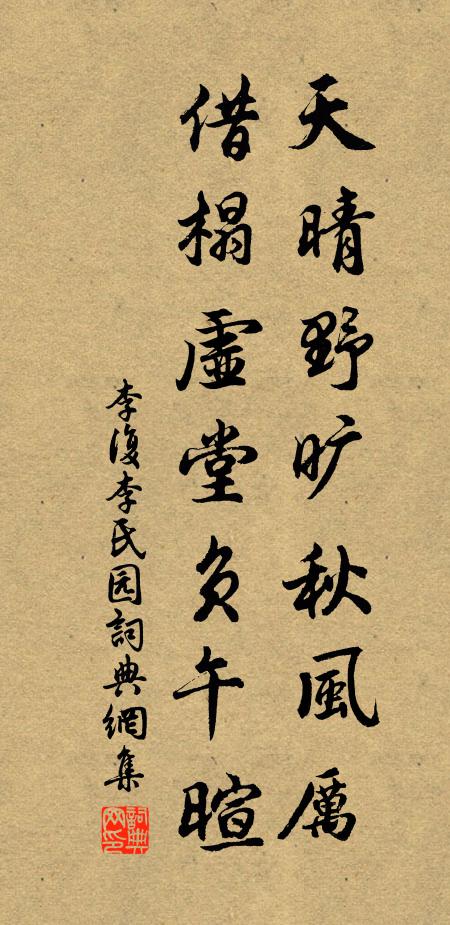 天晴野旷秋風厲
借榻虛堂負午暄
李復李氏园詞典網集
詞典网印